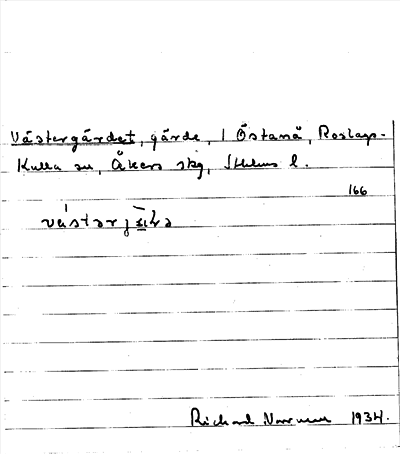 Västergärdet, gärde, 1 Östanå, Roslags-
Kulla sn, Åkers skg, Sthlms l.
166
västərj
Richard 1934.